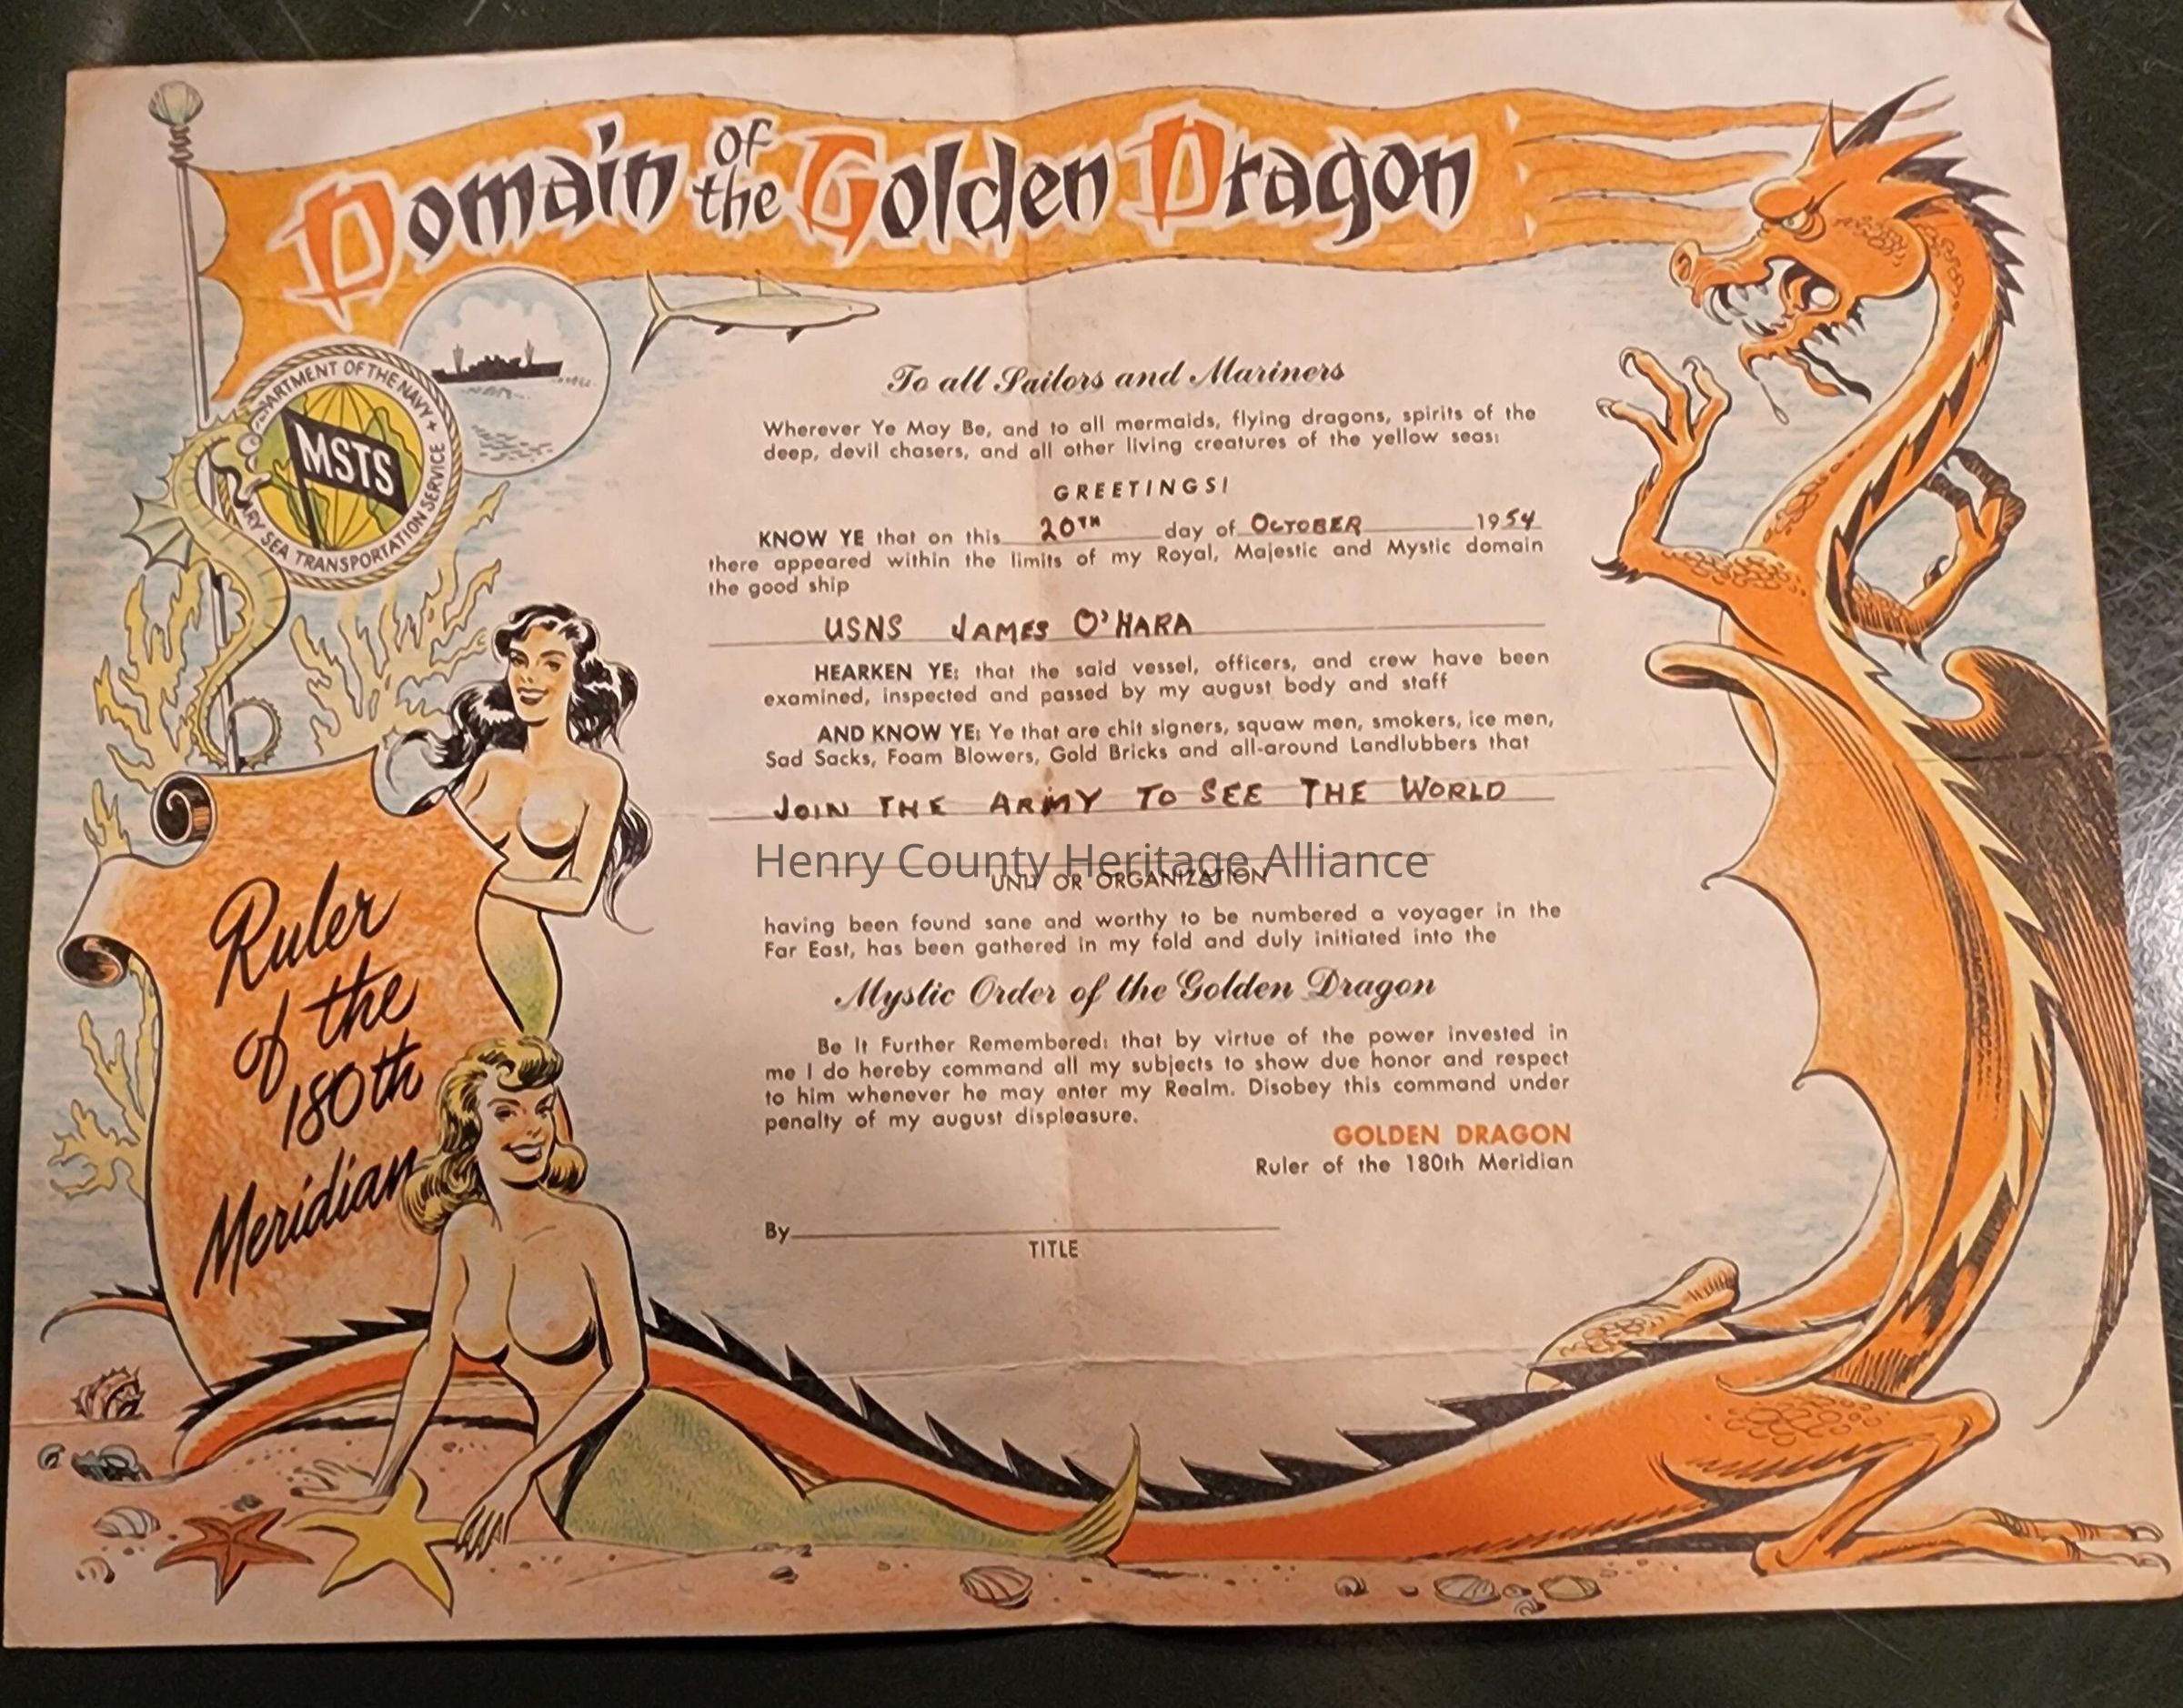 Domain of the Golden Dragon
DEPARTMENT OF THE NAVY
MSTS
SEA TRANSPORTATION SERVICE
To all Sailors and Mariners
Wherever Ye May Be, and to all mermaids, flying dragons, spirits of the
deep, devil chasers, and all other living creatures of the yellow seas:
GREETINGS!
KNOW YE that on this 20TH day of OCTOBER 1954
there appeared within the limits of my Royal, Majestic and Mystic domain
the good ship
USNS JAMES O'HARA
HEARKEN YE: that the said vessel, officers, and crew have been
examined, inspected and passed by my august body and staff
AND KNOW YE: Ye that are chit signers, squaw men, smokers, ice men,
Sad Sacks, Foam Blowers, Gold Bricks and all-around Landlubbers that
JOIN THE ARMY TO SEE THE WORLD
Henry County Heritage Alliance
UNIT OR ORGANIZATION
having been found sane and worthy to be numbered a voyager in the
Far East, has been gathered in my fold and duly initiated into the
Mystic Order of the Golden Dragon
Be It Further Remembered: that by virtue of the power invested in
me I do hereby command all my subjects to show due honor and respect
to him whenever he may enter my Realm. Disobey this command under
penalty of my august displeasure.
GOLDEN DRAGON
Ruler of the 180th Meridian
By
TITLE
Ruler
of the
180th
Meridian